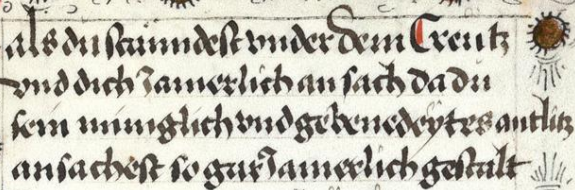 als du stuendest vnder dem Creutz
vnd dich Jamerlich an sach da du
sein miniglich vnd gebenedeytes antlitz
ansachest so gar Jamerlich gestalt